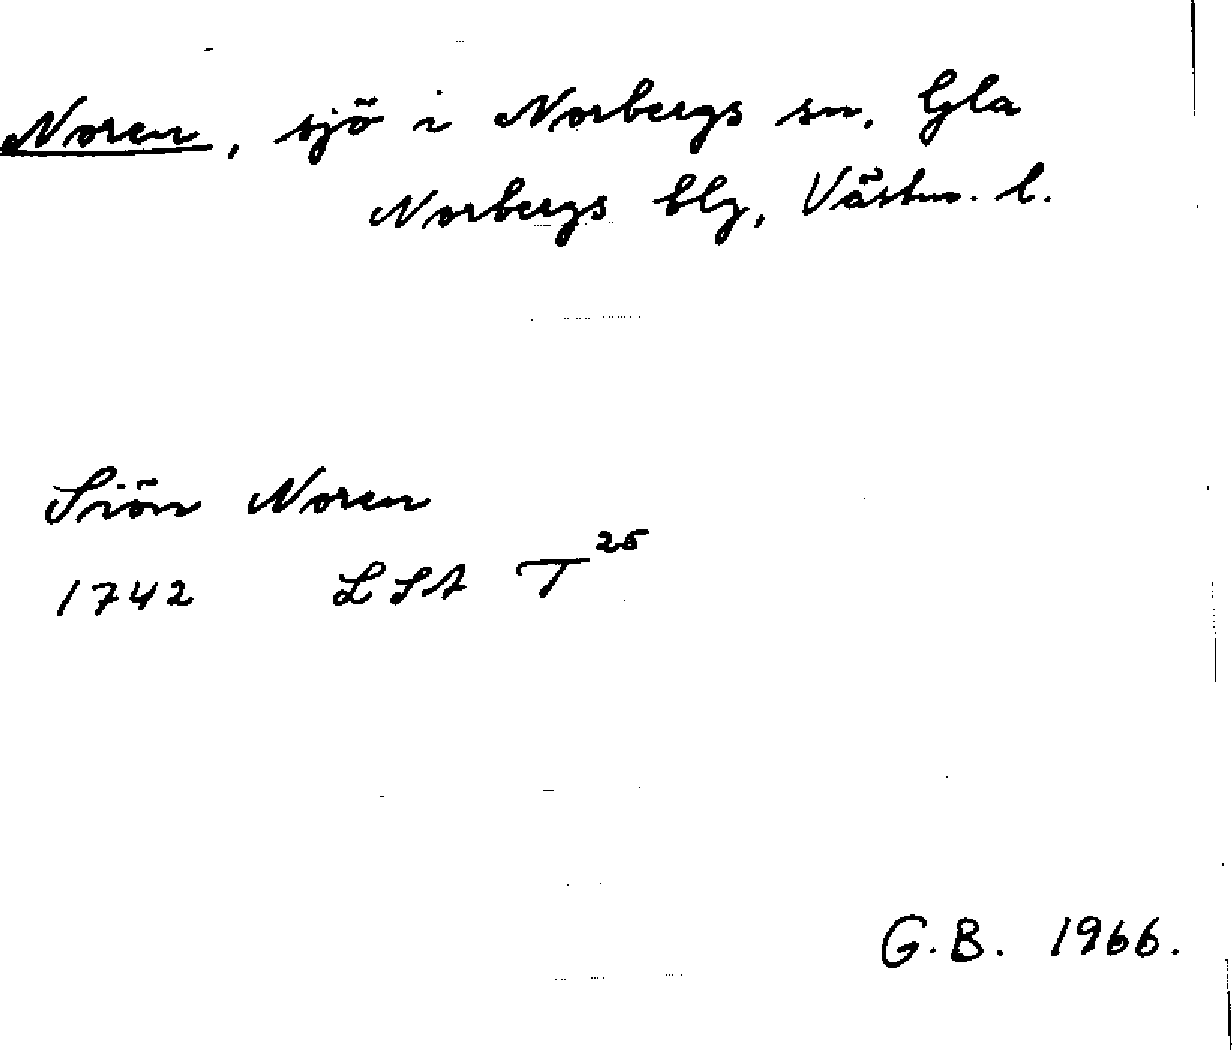 Noren, sjö i Norbergs sn. Gla
Norbergs blg, Västm. l.
Siön Noren
1742 LSA T 25
G.B. 1966.